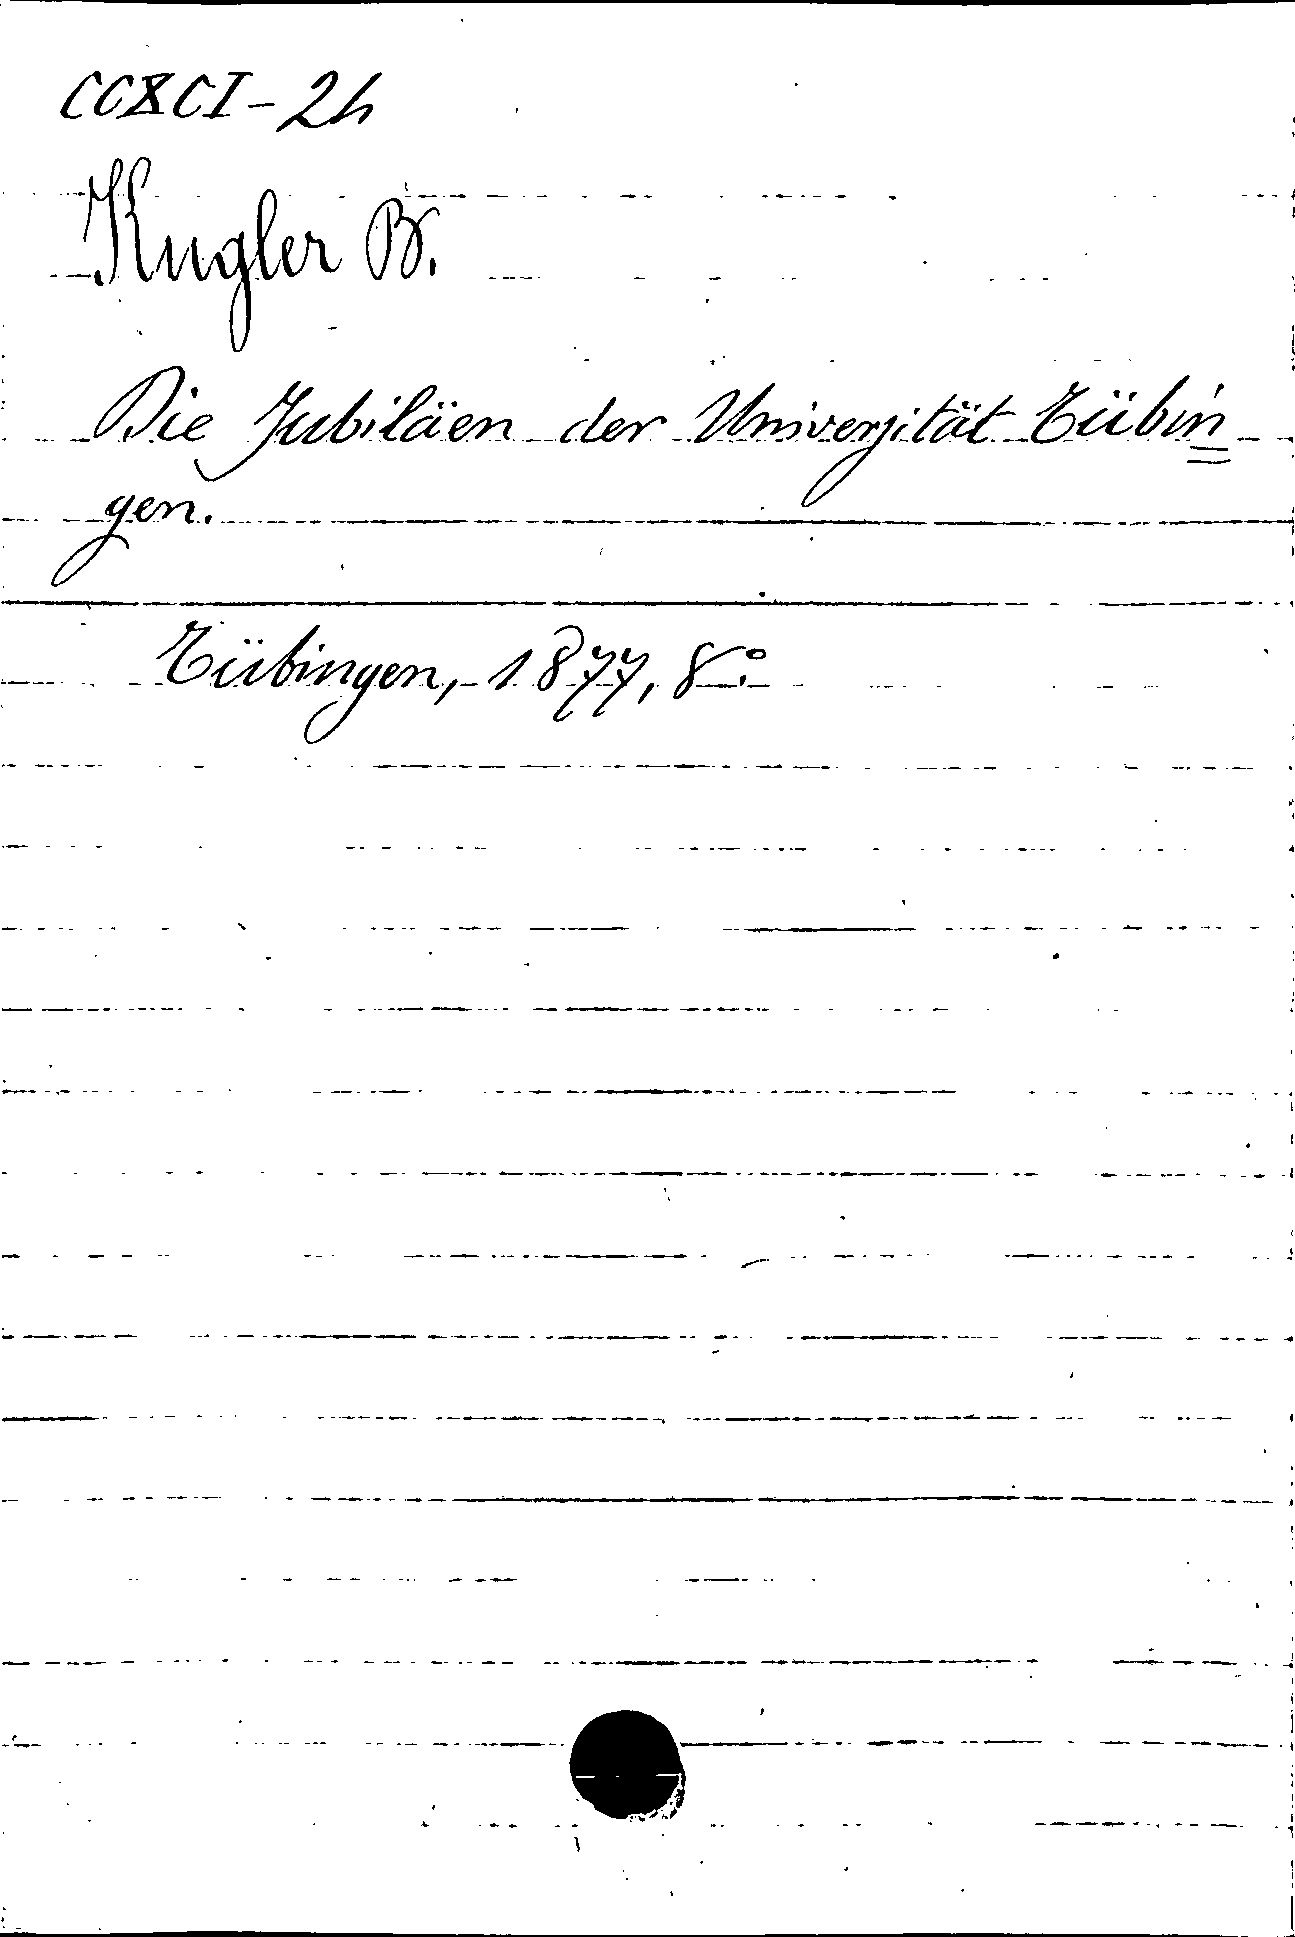 CCXCI-2h
Kugler B.
Die Jubiläen der Universität Tübin=
gen.
Tübingen, 1877, 8.°